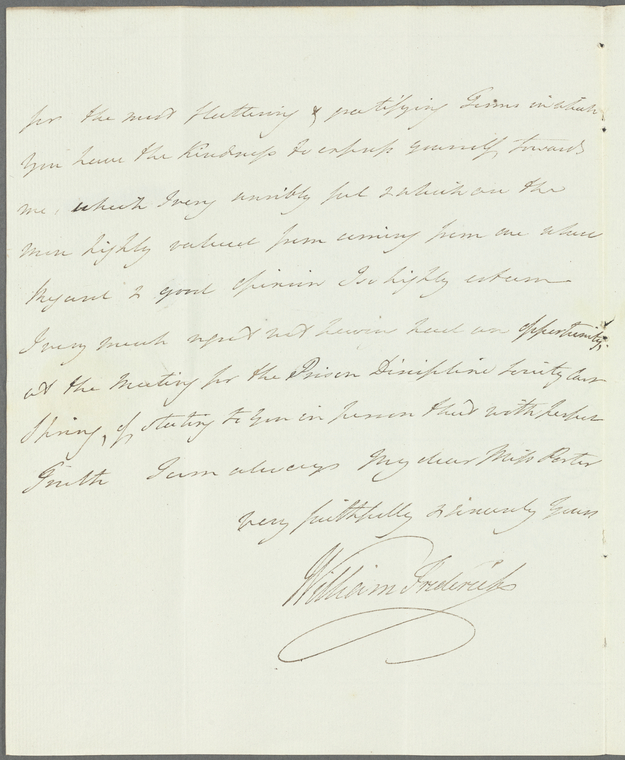 for the most flattering & gratifying Terms in which
You have the Kindness to express yourself, towards
me, which I very sensibly feel & which are the
more highly valued from coming from one whose
Regard & good opinion I so highly esteem
I very much regret not having had an opportunity,
at the Meeting for the Prison Discipline Society last
Spring, of stating to You in person that with perfect
Truth I am always My dear Miss Porter
very faithfully & sincerely Yours
William Frederick